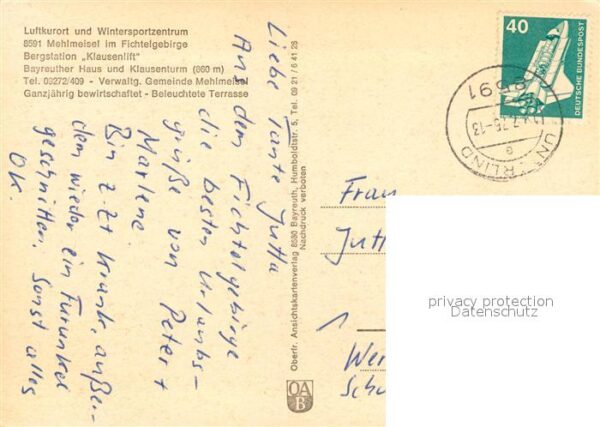 Luftkurort und Wintersportzentrum
8591 Mehlmeisel im Fichtelgebirge
Bergstation „Klausenlift“
Bayreuther Haus und Klausenturm (860 m)
Tel. 09272/409 - Verwaltg. Gemeinde Mehlmeisel
Ganzjährig bewirtschaftet - Beleuchtete Terrasse
Liebe Tante Jutta
Aus dem Fichtelgebirge
die besten Urlaubs-
grüße von Peter +
Marlene.
Bin z.Zt krank, außer-
dem wieder ein Furunkel
geschnitten, Sonst alles
OK.
Oberfr. Ansichtskartenverlag 8580 Bayreuth, Humboldtstr. 5, Tel. 09 21 / 6 41 28
Nachdruck verboten
OA
B
40
DEUTSCHE BUNDESPOST
8591
7.75-13
a
UNTERLIND
Frau
Jutt
privacy protection
Datenschutz